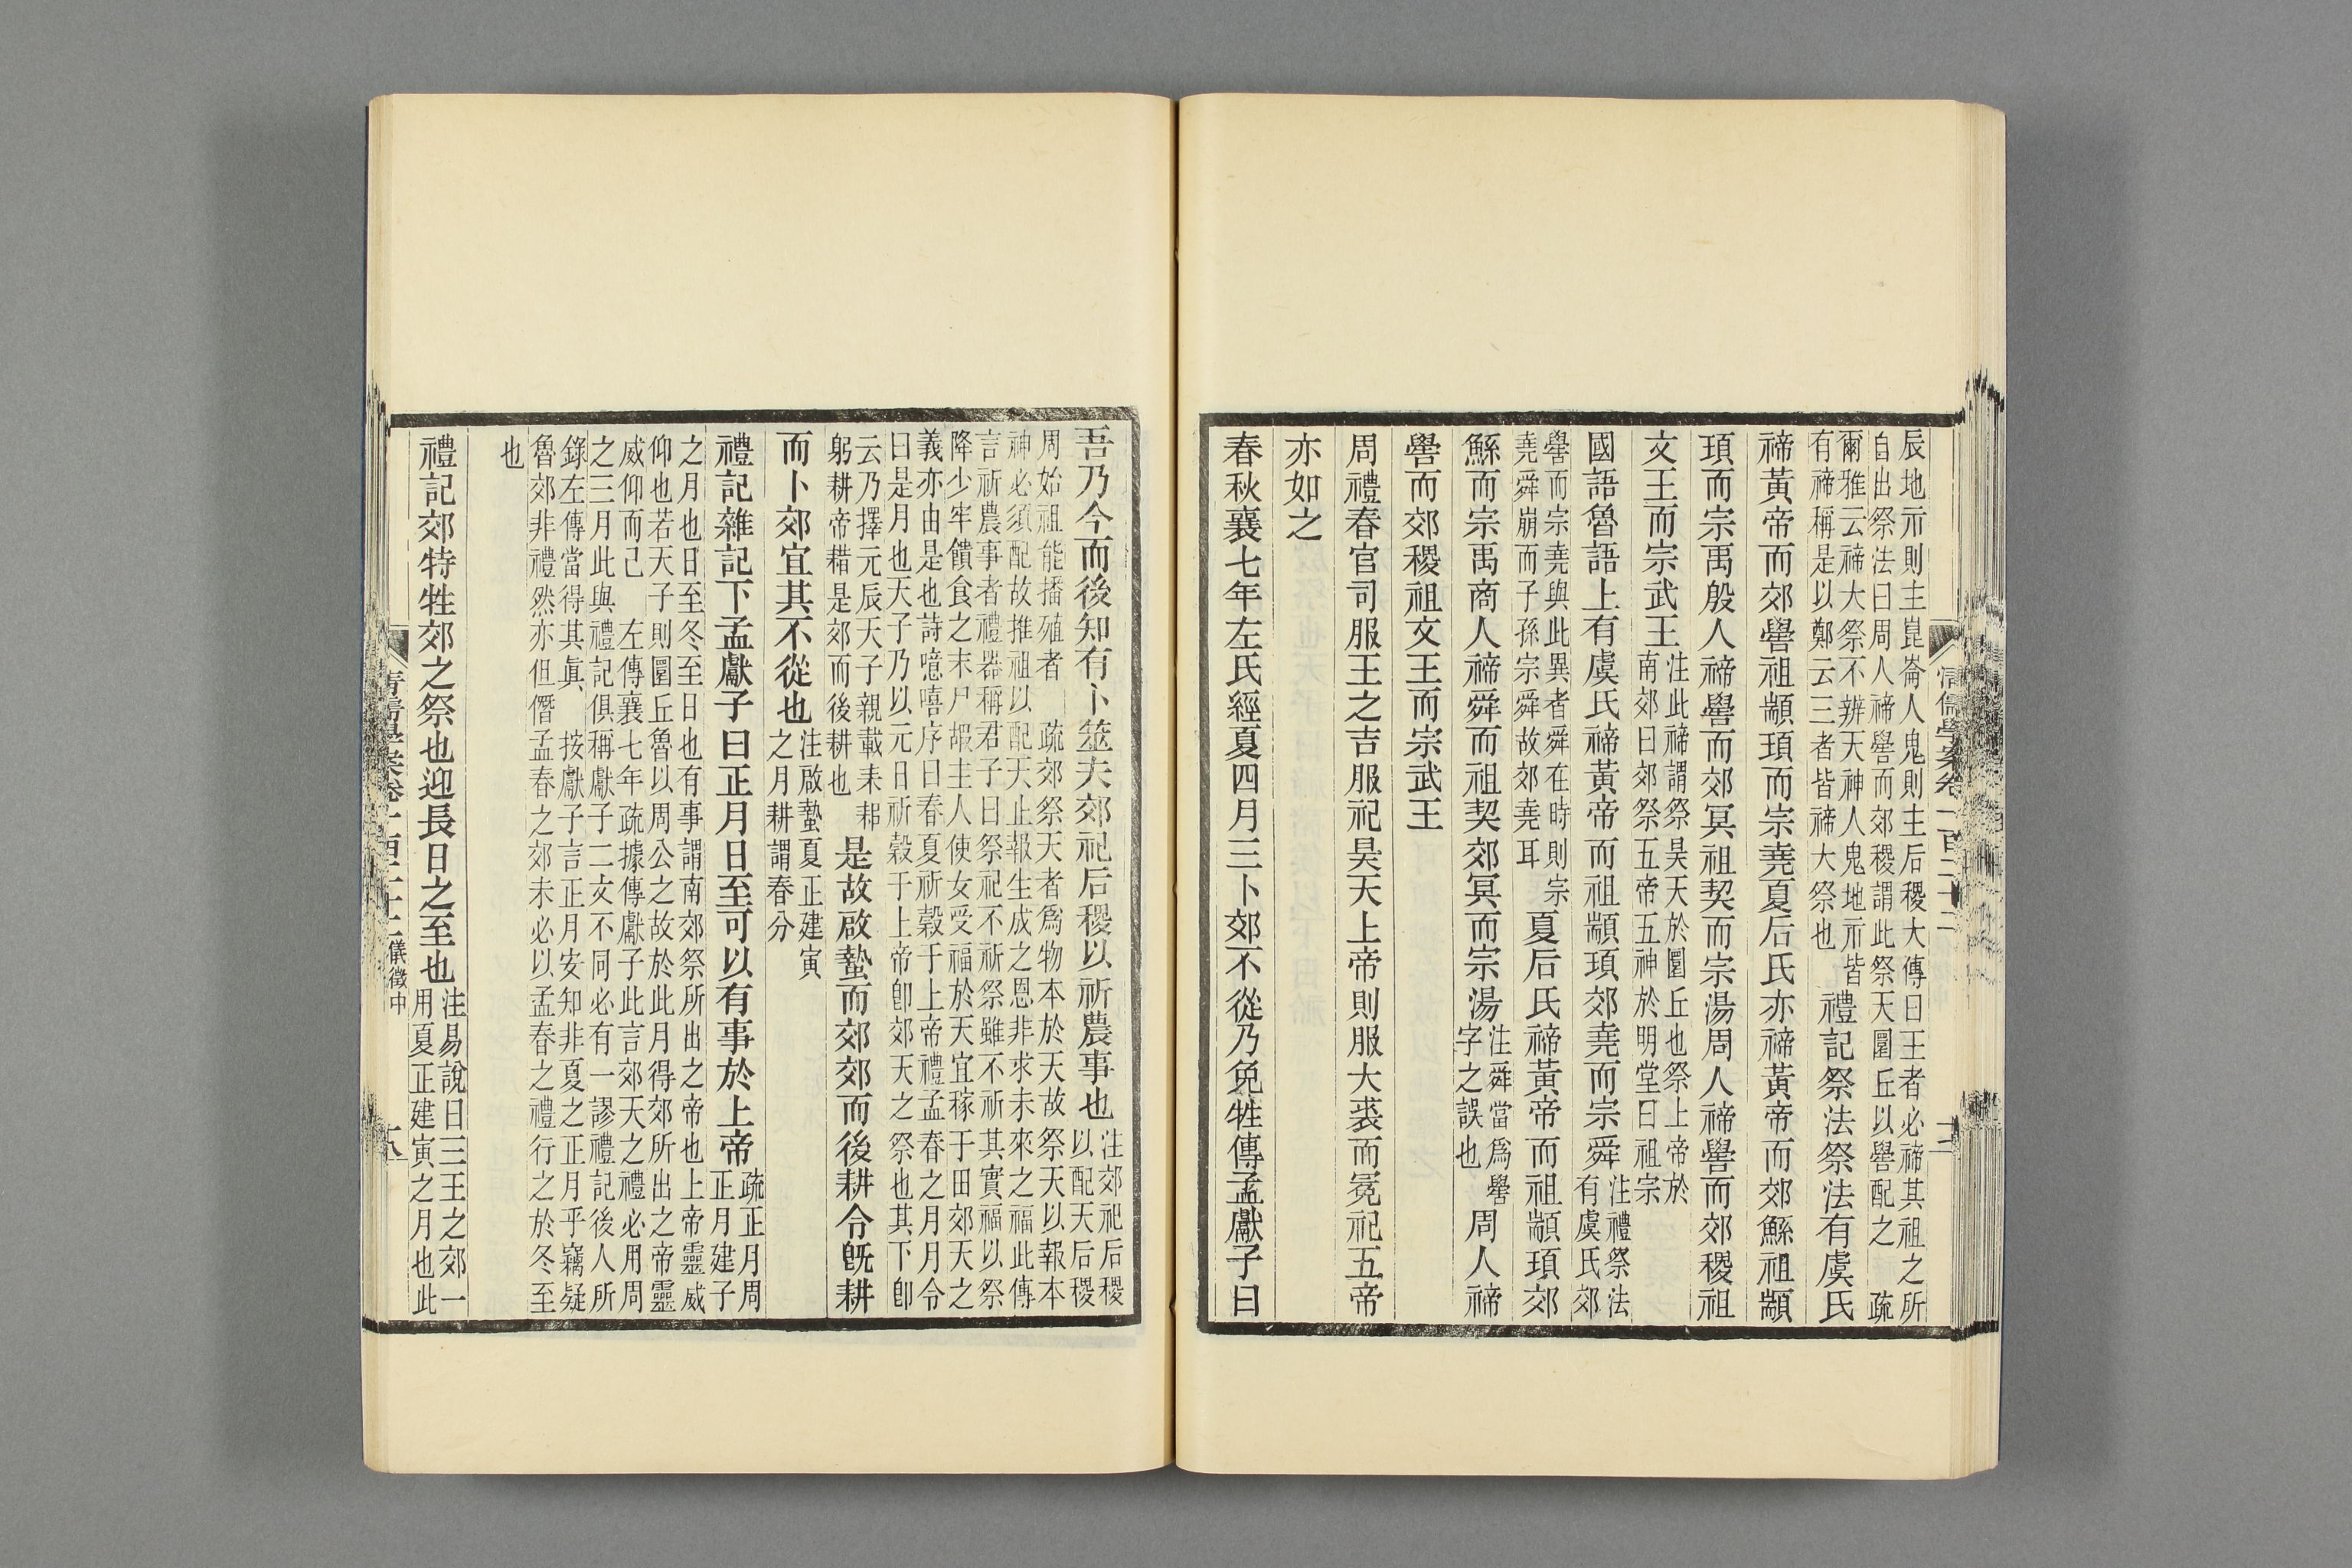 辰地示則主崑崙人鬼則主后稷大傳曰王者必禘其祖之所
自出祭法曰周人禘嚳而郊稷謂此祭天圜丘以嚳配之　疏
爾雅云禘大祭不辨天神人鬼地示皆
有禘稱是以鄭云三者皆禘大祭也
禮記祭法祭法有虞氏
禘黃帝而郊嚳祖顓頊而宗堯夏后氏亦禘黃帝而郊鯀祖顓
頊而宗禹殷人禘嚳而郊冥祖契而宗湯周人禘嚳而郊稷祖
文王而宗武王
注此禘謂祭昊天於圜丘也祭上帝於
南郊曰郊祭五帝五神於明堂曰祖宗
國語魯語上有虞氏禘黃帝而祖顓頊郊堯而宗舜
注禮祭法
有虞氏郊
嚳而宗堯與此異者舜在時則宗
堯舜崩而子孫宗舜故郊堯耳
夏后氏禘黃帝而祖顓頊郊
鯀而宗禹商人禘舜而祖契郊冥而宗湯
注舜當爲嚳
字之誤也
周人禘
嚳而郊稷祖文王而宗武王
周禮春官司服王之吉服祀昊天上帝則服大裘而冕祀五帝
亦如之
春秋襄七年左氏經夏四月三卜郊不從乃免牲傳孟獻子曰
吾乃今而後知有卜筮夫郊祀后稷以祈農事也
注郊祀后稷
以配天后稷
周始祖能播殖者　疏郊祭天者爲物本於天故祭天以報本
神必須配故推祖以配天止報生成之恩非求未來之福此傳
言祈農事者禮器稱君子曰祭祀不祈祭雖不祈其實福以祭
降少牢饋食之末尸嘏主人使女受福於天宜稼于田郊天之
義亦由是也詩噫嘻序曰春夏祈穀于上帝禮孟春之月月令
曰是月也天子乃以元日祈穀于上帝卽郊天之祭也其下卽
云乃擇元辰天子親載耒耜
躬耕帝耤是郊而後耕也
是故啟蟄而郊郊而後耕今旣耕
而卜郊宜其不從也
注啟蟄夏正建寅
之月耕謂春分
禮記雜記下孟獻子曰正月日至可以有事於上帝
疏正月周
正月建子
之月也日至冬至日也有事謂南郊祭所出之帝也上帝靈威
仰也若天子則圜丘魯以周公之故於此月得郊所出之帝靈
威仰而已　左傳襄七年疏據傳獻子此言郊天之禮必用周
之三月此與禮記俱稱獻子二文不同必有一謬禮記後人所
錄左傳當得其眞　按獻子言正月安知非夏之正月乎竊疑
魯郊非禮然亦但僭孟春之郊未必以孟春之禮行之於冬至
也
禮記郊特牲郊之祭也迎長日之至也
注易說曰三王之郊一
用夏正建寅之月也此
儀徵中